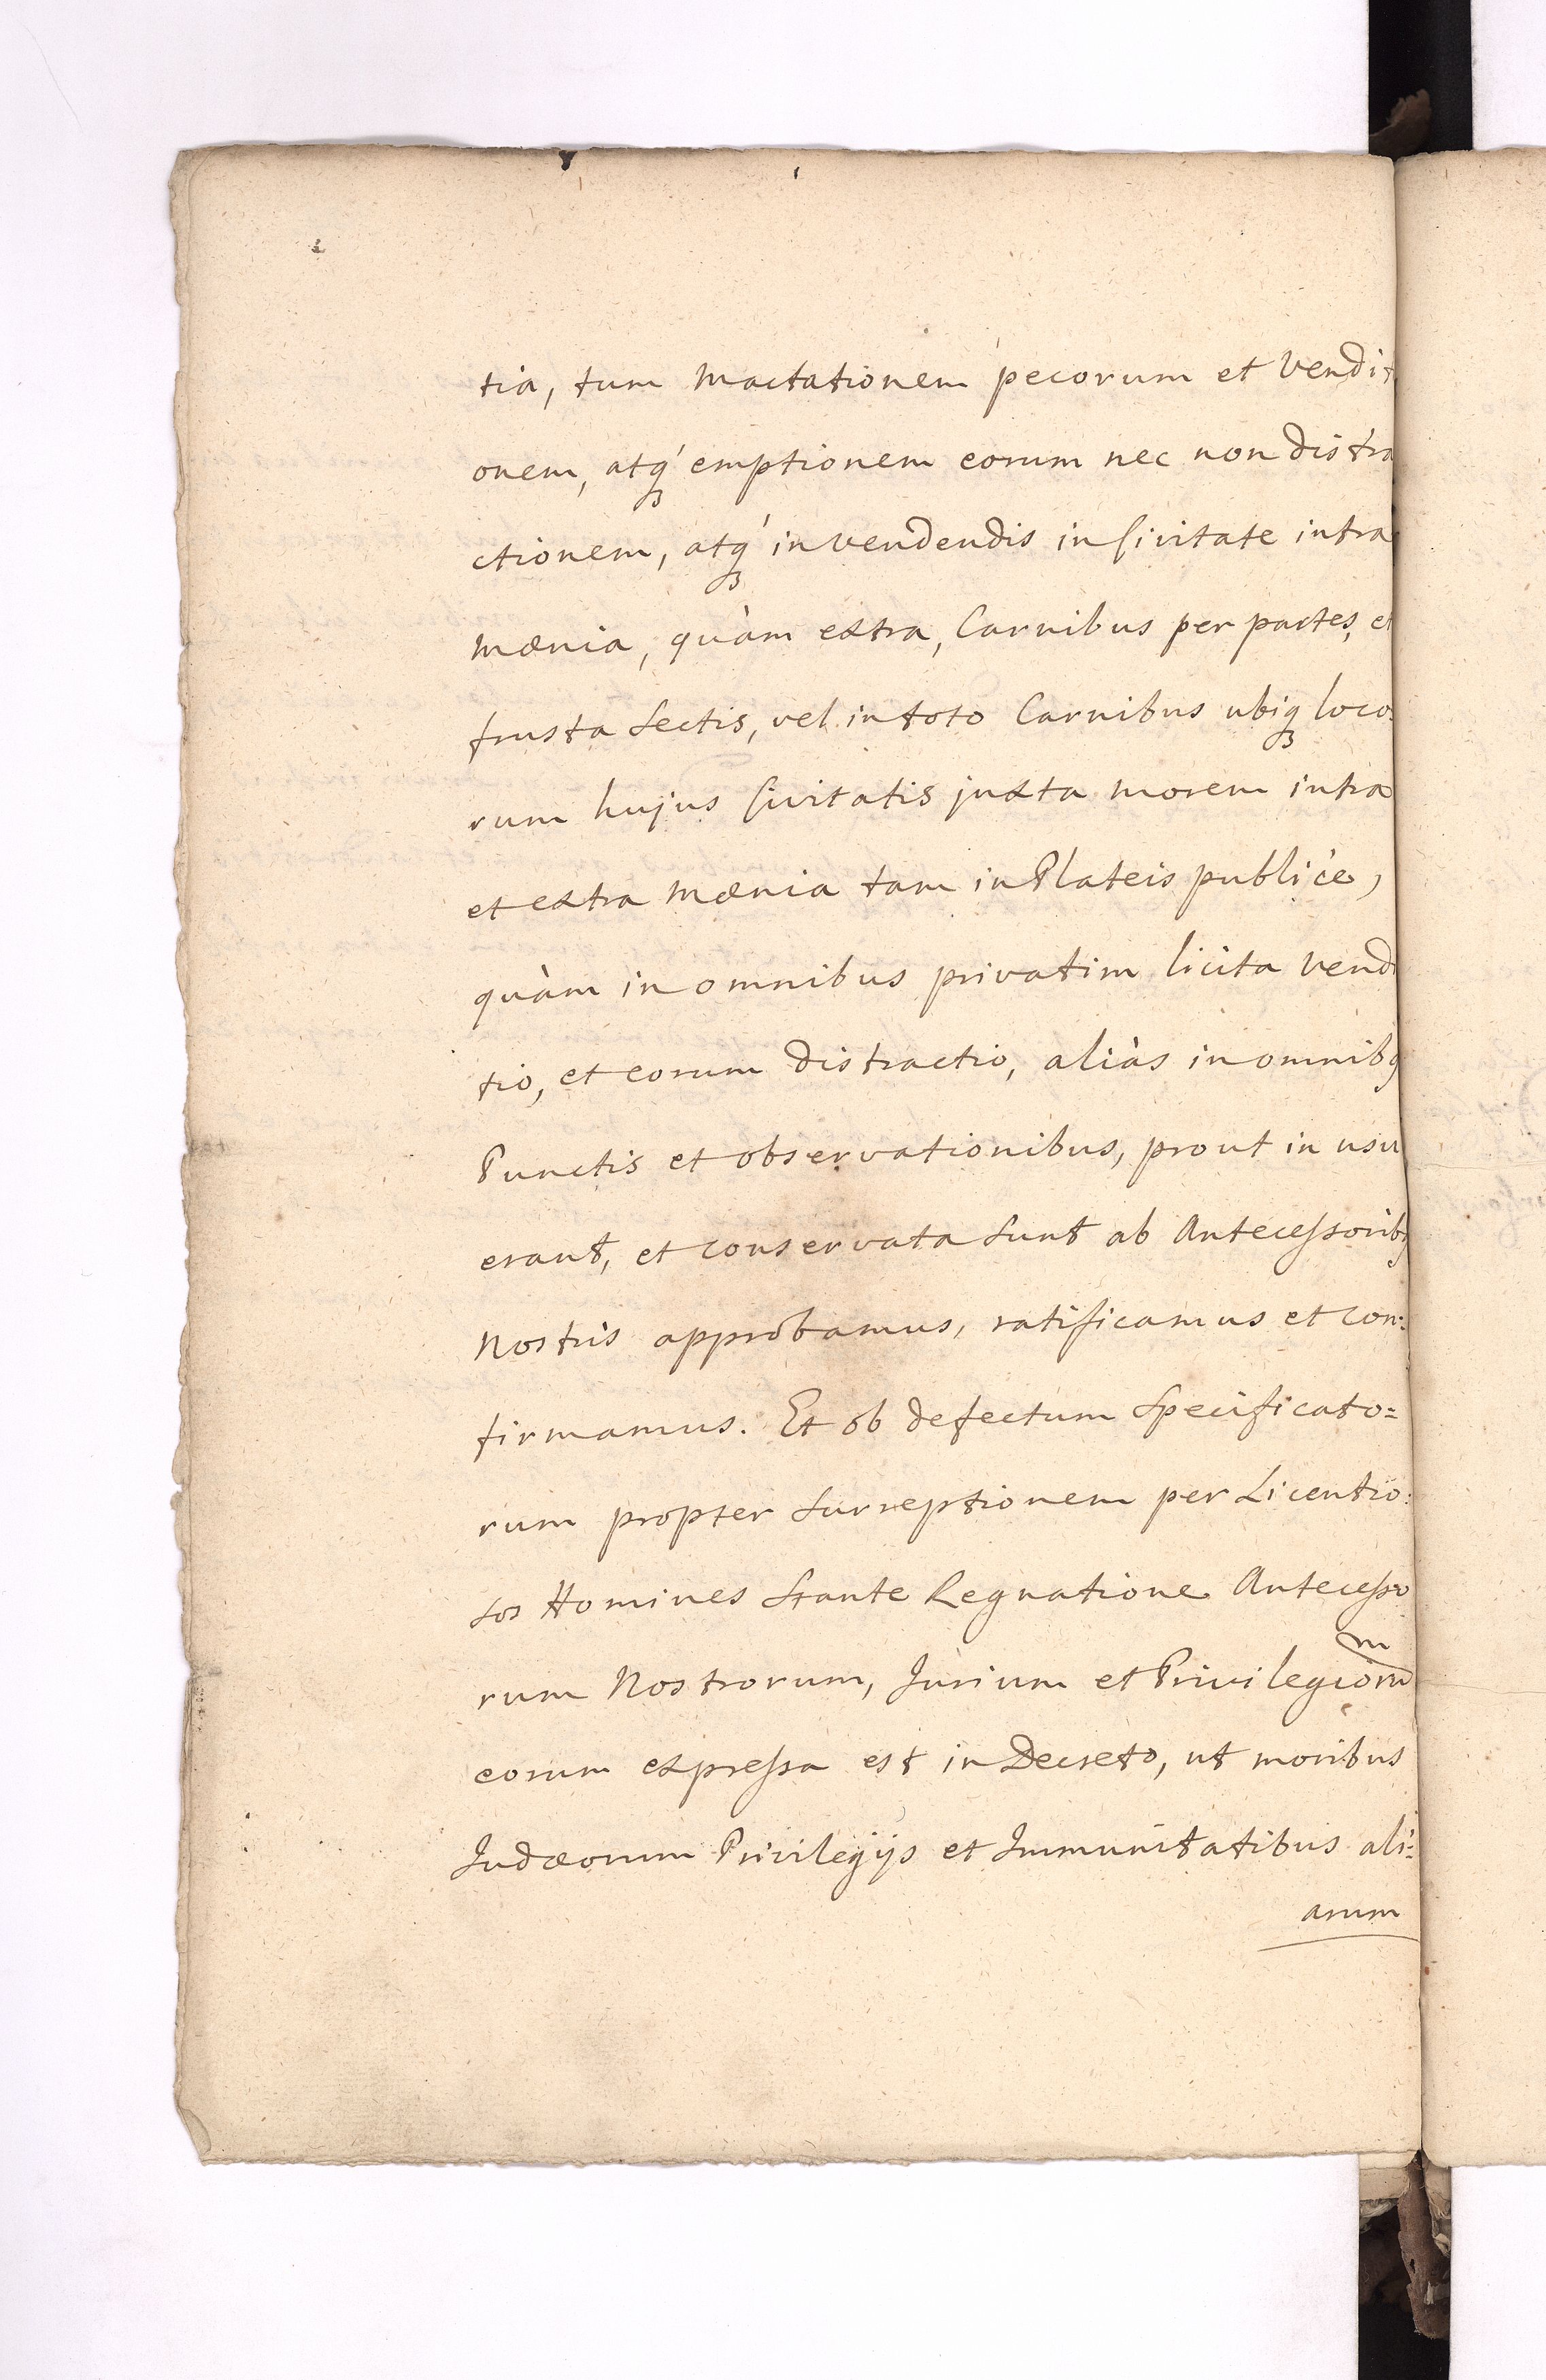 tia, tum Mactationem pecorum et Vendit
onem, atq́ꝫ emptionem eorum nec non distra
ctionem, atq́ꝫ in vendendis in Civitate intra
Mænia, quàm extra, Carnibus per partes, et
frusta Sectis, vel in toto Carnibus ubiqꝫ loco:
rum hujus Civitatis juxta morem intra
et extra Mænia tam in Plateis publicè,
quàm in omnibus privatim licita Vendi
tio, et eorum distractio, aliàs in omnibꝯ
Punctis et observationibus, prout in usu
erant, et conservata Sunt ab Antecessoribꝯ
Nostris approbamus, ratificamus et con:
firmamus. Et ob defectum Specificato=
rum propter Surreptionem per Licentio:
sos Homines Stante Regnatione Antecesso
rum Nostrorum, Jurium et Privilegiorum
eorum expressa est in Decreto, ut moribus
Judæorum Privilegijs et Immunitatibus ali:
arum